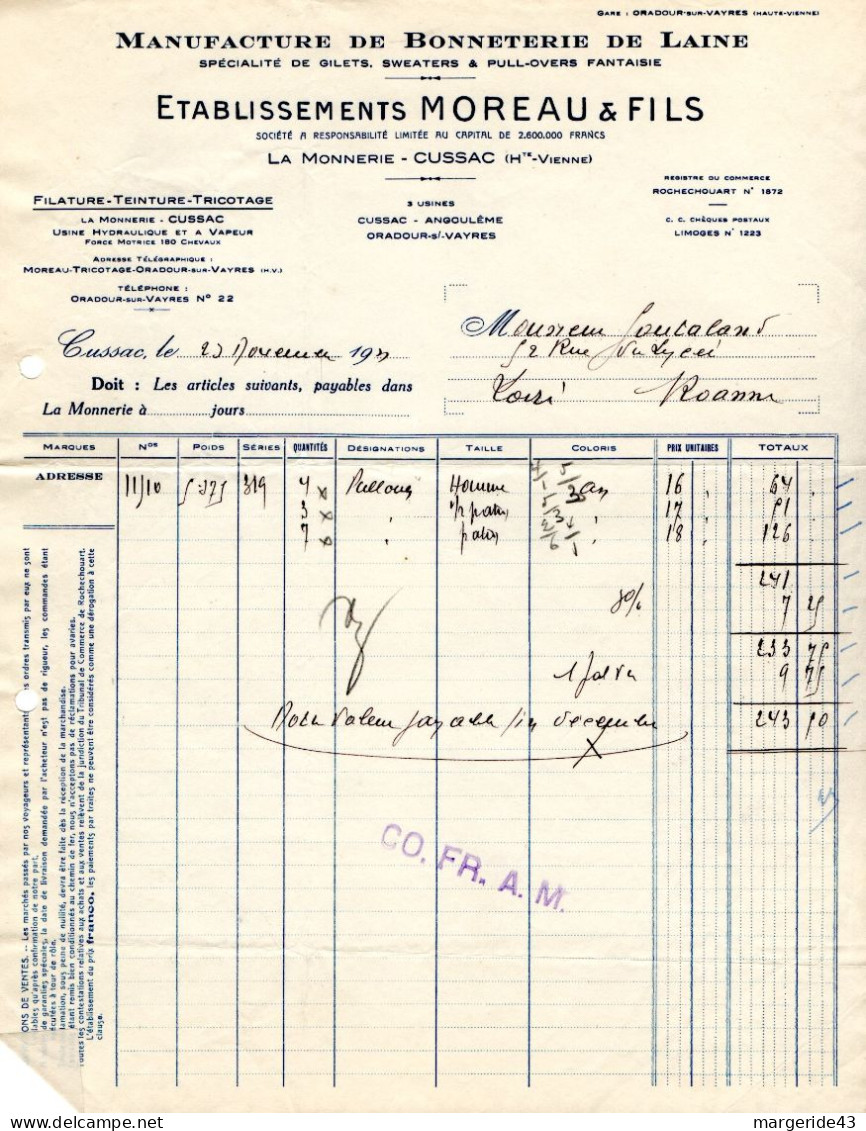 GARE : ORADOUR-SUR-VAYRES (HAUTE-VIENNE)
MANUFACTURE DE BONNETERIE DE LAINE
SPÉCIALITÉ DE GILETS, SWEATERS & PULL-OVERS FANTAISIE
ETABLISSEMENTS MOREAU & FILS
SOCIÉTÉ A RESPONSABILITÉ LIMITÉE AU CAPITAL DE 2.600.000 FRANCS
LA MONNERIE - CUSSAC (HTE-VIENNE)
FILATURE-TEINTURE-TRICOTAGE
LA MONNERIE - CUSSAC
USINE HYDRAULIQUE ET A VAPEUR
FORCE MOTRICE 180 CHEVAUX
ADRESSE TÉLÉGRAPHIQUE :
MOREAU-TRICOTAGE-ORADOUR-SUR-VAYRES (H.V.)
TÉLÉPHONE :
ORADOUR-SUR-VAYRES N° 22
3 USINES
CUSSAC - ANGOULÊME
ORADOUR-S/-VAYRES
REGISTRE DU COMMERCE
ROCHECHOUART N° 1872
C. C. CHÈQUES POSTAUX
LIMOGES N° 1223
Monsieur
52 Rue du Lycée
Loire Roanne
Cussac, le 23 Novembre 193
Doit : Les articles suivants, payables dans
La Monnerie à jours
MARQUES NOS POIDS SÉRIES QUANTITÉS DÉSIGNATIONS TAILLE COLORIS PRIX UNITAIRES TOTAUX
ADRESSE 11/10 319 4 x Homme 16 64
3 x 1/2 patron 17 51
7 x patron 18 126
241
3% 7 25
233 75
9 75
243 50
payable fin décembre
X
CO. FR. A. M.
ONS DE VENTES. -- Les marchés passés par nos voyageurs et représentants, les ordres transmis par eux ne sont
lables qu'après confirmation de notre part.
de garanties spéciales, la date de livraison demandée par l'acheteur n'est pas de rigueur, les commandes étant
écutées à tour de rôle.
lamation, sous peine de nullité, devra être faite dès la réception de la marchandise.
étant remis bien conditionnés au chemin de fer, nous n'acceptons pas de réclamations pour avaries.
outes les contestations relatives aux achats et aux ventes relèvent de la juridiction du Tribunal de Commerce de Rochechouart.
L'établissement du prix franco, les paiements par traites ne peuvent être considérés comme une dérogation à cette
clause.
margeride43